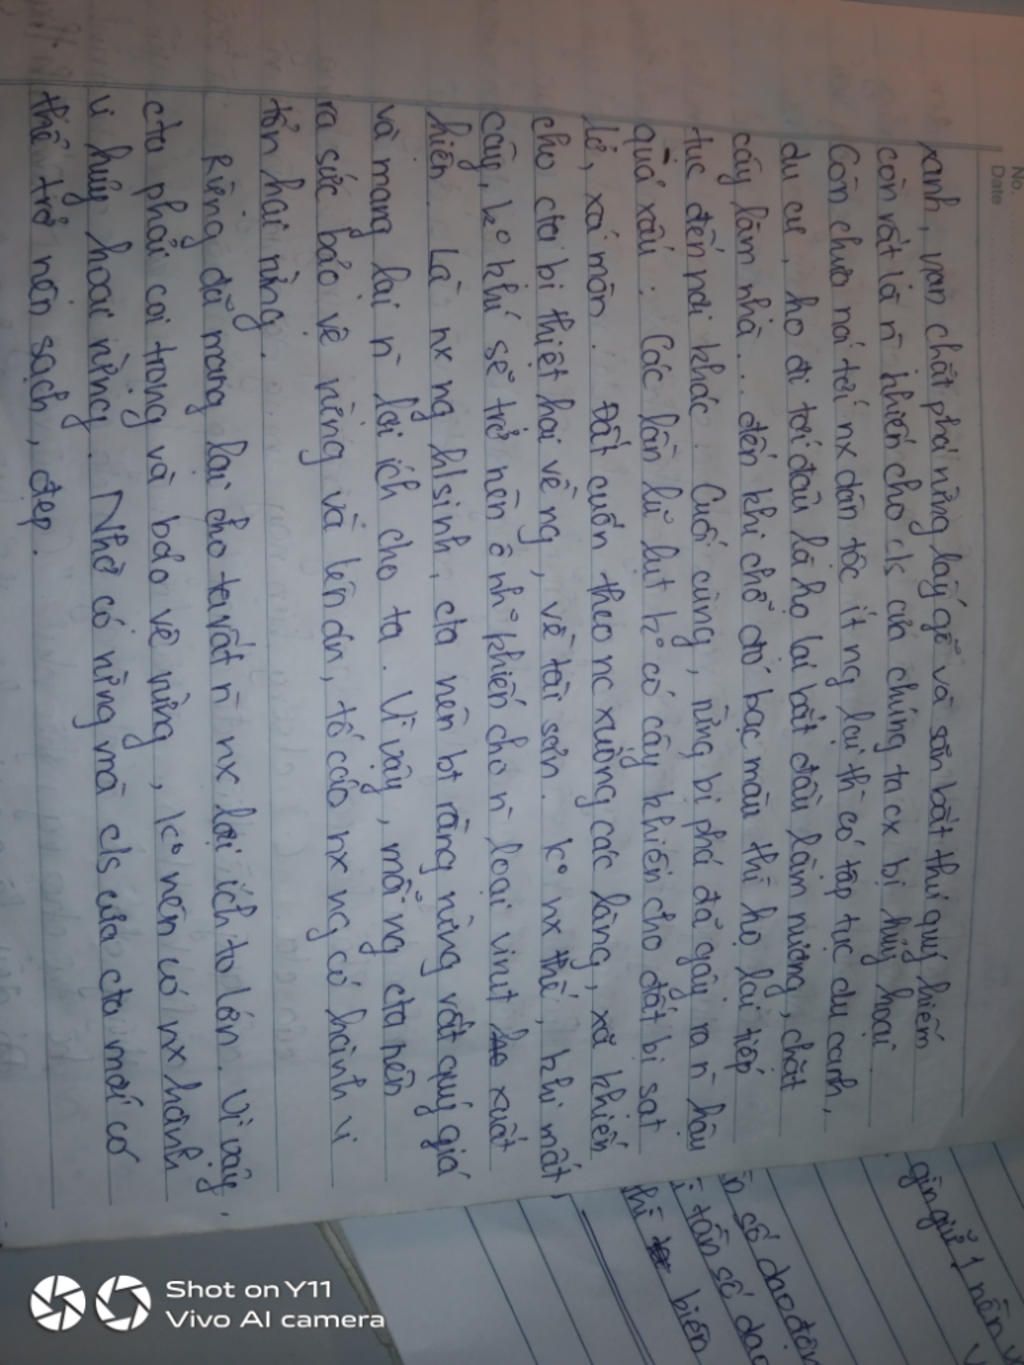 No.
Date
xanh, vạn chặt phá rừng lấy gỗ và săn bắt thú quý hiếm
còn rất là n` khiến cho c/s của chúng ta cx bị hủy hoại
Còn chưa nói tới nx dân tộc ít ng lại thì có tập tục du canh,
du cư, họ đi tới đâu là họ lại bắt đầu làm nương, chặt
cây làm nhà... đến khi chỗ đó bạc màu thì họ lại tiếp
tục đến nơi khác. Cuối cùng, rừng bị phá đã gây ra n` hậu
quả xấu: Các lần lũ lụt k° có cây khiến cho đất bị sạt
lở, xói mòn. Đất cuốn theo nc xuống các làng, xã khiến
cho cta bị thiệt hại về ng, về tài sản. K° nx thế, khi mất
cây, k° khí sẽ trở nên ô nh° khiến cho n` loại virut xuất
hiện. Là nx ng h/sinh, cta nên bt rằng rừng rất quý giá
và mang lại n` lợi ích cho ta. Vì vậy, mỗi ng cta nên
ra sức bảo vệ rừng và lên án, tố cáo nx ng có hành vi
tổn hại rừng.
Rừng đã mang lại cho ta rất n` nx lợi ích to lớn. Vì vậy,
cta phải coi trọng và bảo vệ rừng, k° nên có nx hành
vi hủy hoại rừng. Nhờ có rừng mà c/s của cta mới có
thể trở nên sạch, đẹp.
gìn giữ 1 nền
số dao động
tần số dao
biên
Shot on Y11
Vivo AI camera